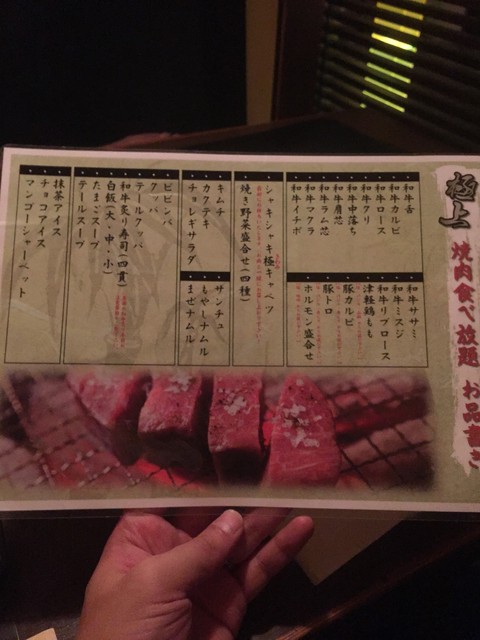 極上
焼肉食べ放題 お品書き
和牛舌
和牛カルビ
和牛ロース
和牛クリ
和牛中落ち
和牛肩芯
和牛ラム芯
和牛マクラ
和牛イチボ
和牛ササミ
和牛ミスジ
和牛リブロース
津軽鶏もも
豚カルビ
豚トロ
ホルモン盛合せ
シャキシャキ極キャベツ
焼き野菜盛合せ(四種)
キムチ
カクテキ
チョレギサラダ
サンチュ
もやしナムル
まぜナムル
ビビンバ
クッパ
テールクッパ
和牛炙り寿司(四貫)
白飯(大・中・小)
たまごスープ
テールスープ
抹茶アイス
チョコアイス
マンゴーシャーベット